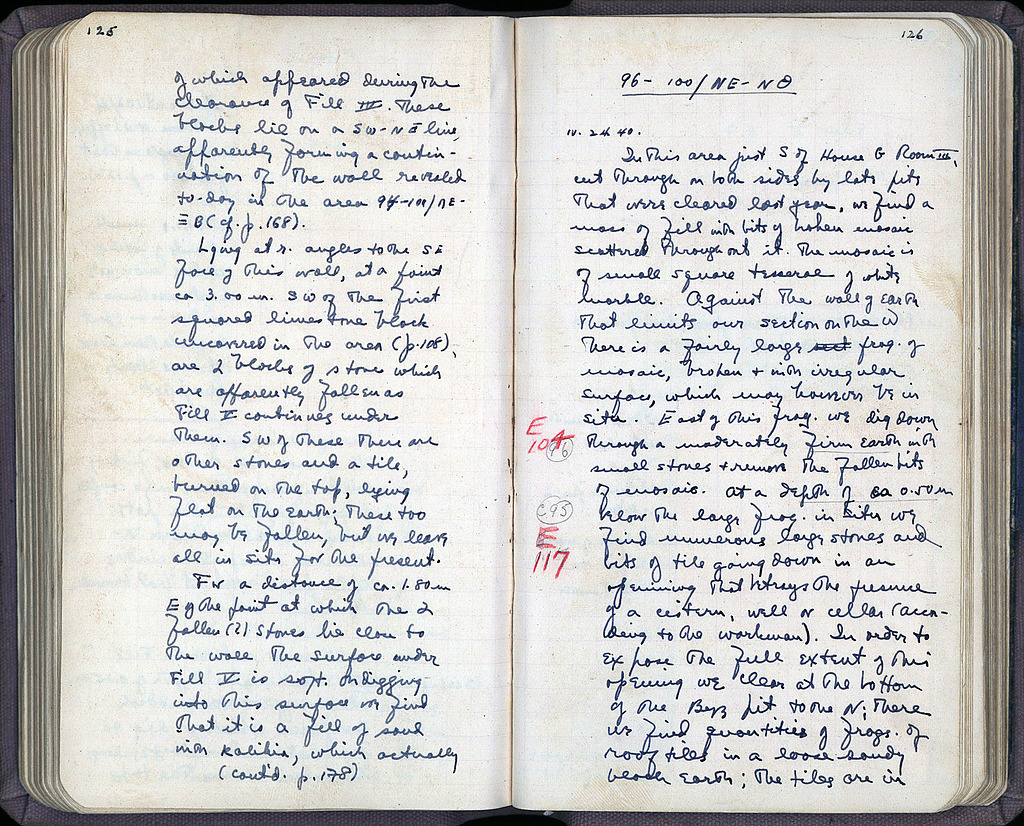 125
of which appeared during the
clearance of Fill III. These
blocks lie on a SW-NE line,
apparently forming a contin-
uation of the wall revealed
to-day in the area 94-101/ΝΕ-
ΞΒ (cf. p. 168).
Lying at r. angles to the SE
face of this wall, at a point
ca 3.00 m. SW of the first
squared limestone block
uncovered in the area (p. 108),
are 2 blocks of stone which
are apparently fallen as
Fill V continues under
them. SW of these there are
other stones and a tile,
burned on the top, lying
flat on the earth; these too
may be fallen, but we leave
all in situ for the present.
For a distance of ca. 1.80 m
E of the point at which the 2
fallen (?) stones lie close to
the wall the surface under
Fill V is soft. On digging
into this surface we find
that it is a fill of sand
with kalikia, which actually
(cont'd. p. 178)
126
96-100/ΝΕ-ΝΘ
IV. 24. 40.
In this area just S of House G Room III,
cut through on both sides by late pits
that were cleared last year, we find a
mass of fill with bits of broken mosaic
scattered throughout it. The mosaic is
of small square tesserae of white
marble. Against the wall of earth
that limits our section on the W
there is a fairly large sect frag. of
mosaic, broken + with irregular
surface, which may however be in
situ. East of this frag. we dig down
E
104
96
through a moderately firm earth with
small stones + remove the fallen bits
of mosaic. At a depth of ca 0.50 m
C95
below the large frag. in situ we
E
117
find numerous large stones and
bits of tile going down in an
openning that betrays the presence
of a cistern, well or cellar (accor-
ding to the workman). In order to
expose the full extent of this
opening we clear at the bottom
of the Byz pit to the N; there
we find quantities of frags. of
roof tiles in a loose sandy
black earth; the tiles are in